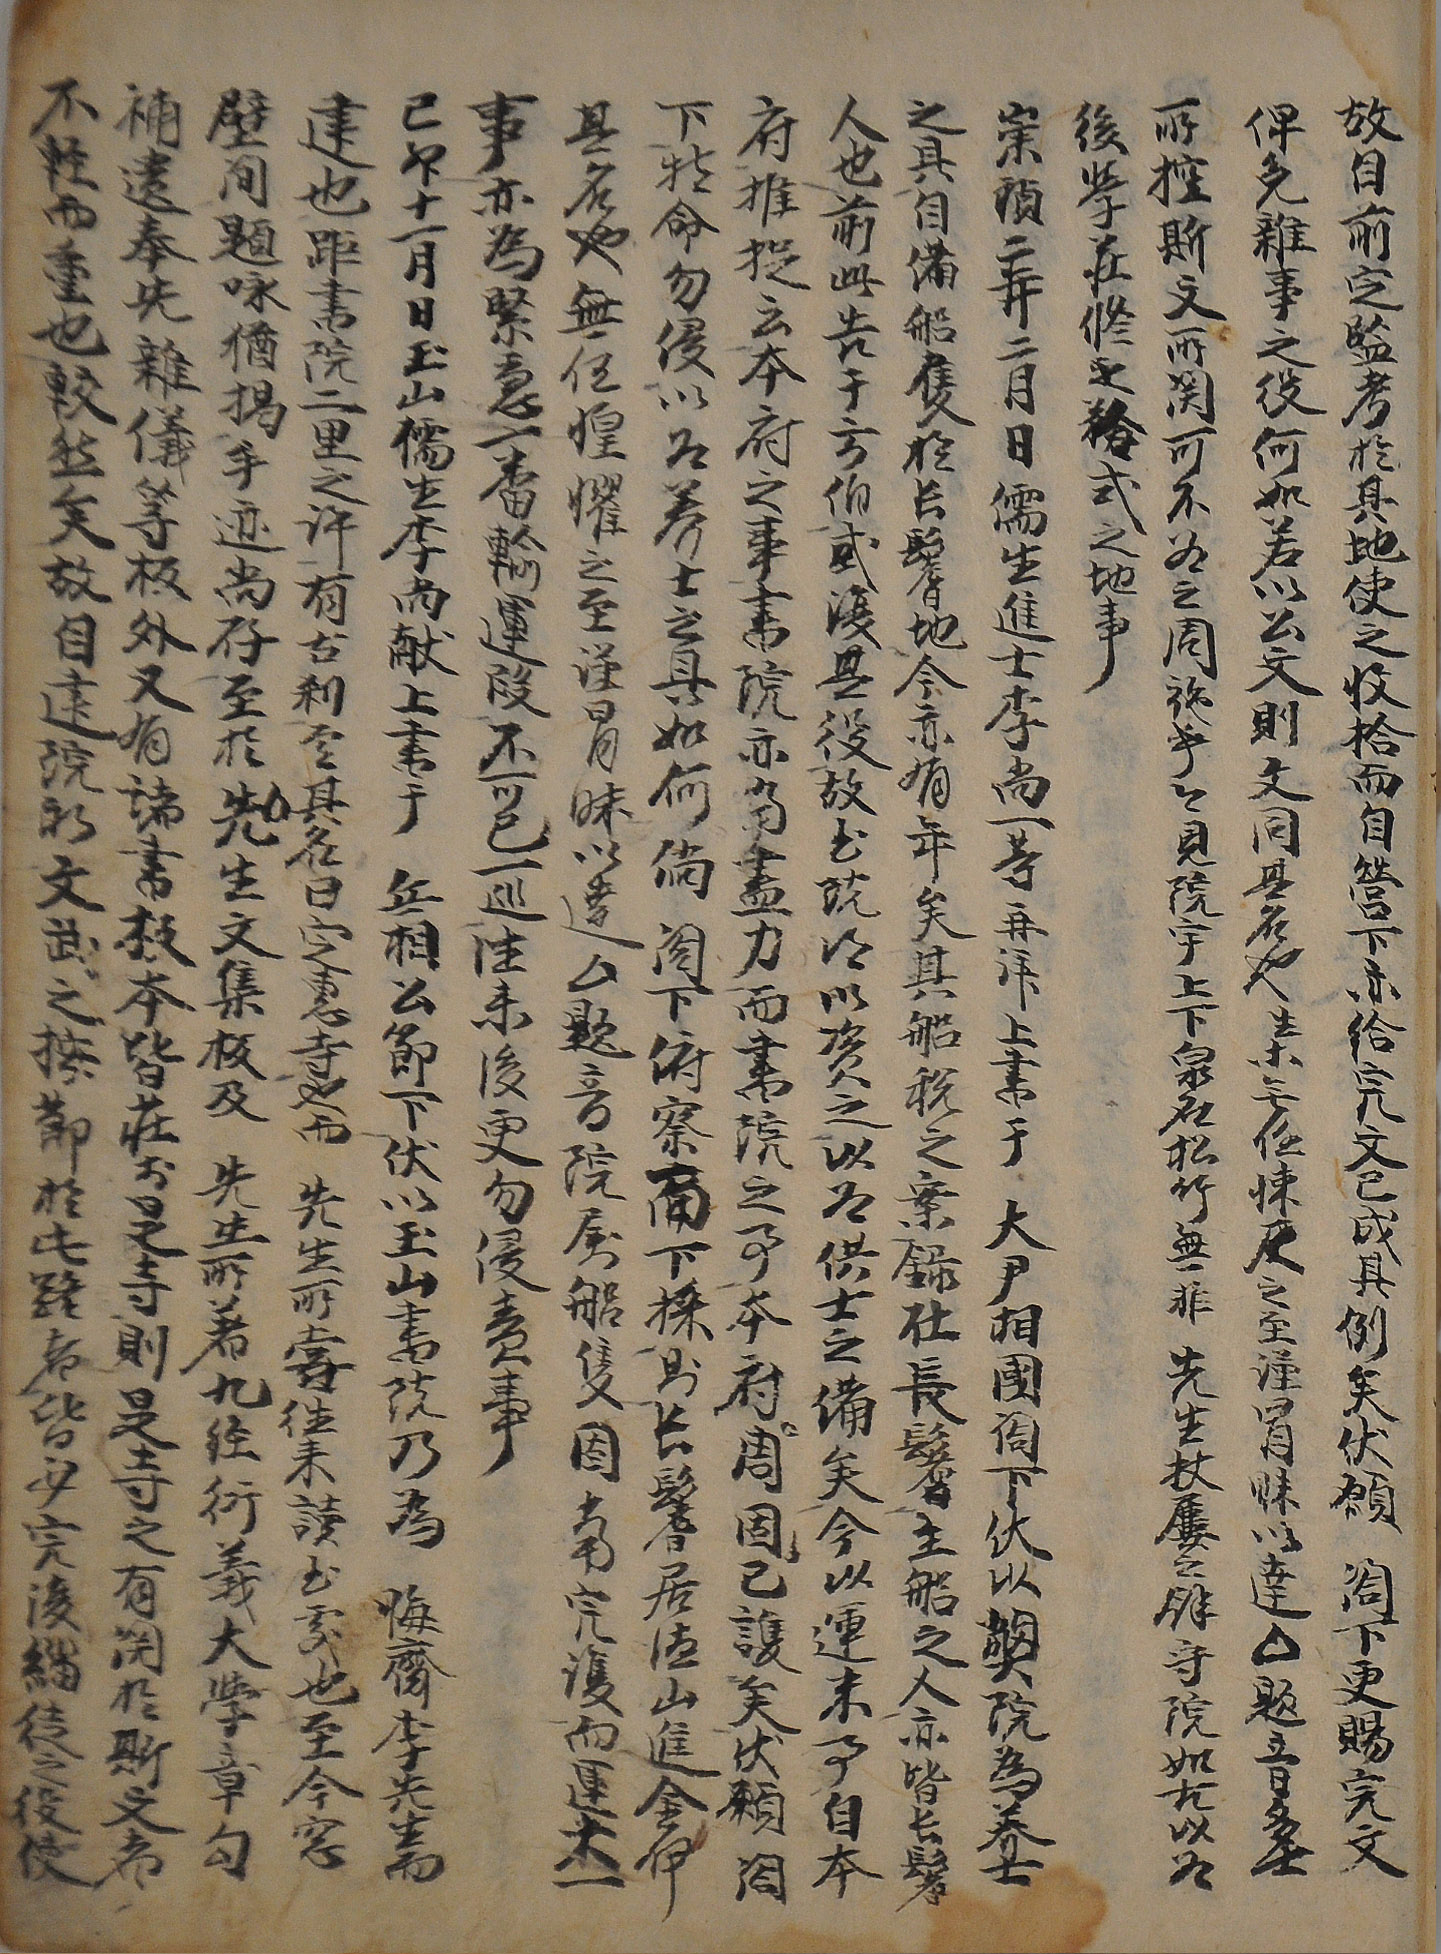 故自前定監考於其地使之收拾而自營下亦給完文已成其例矣伏願 閤下更賜完文
俾免雜事之役何如若以公文則文同其名也生等無任悚灰之至謹冒昧以達 題音多士
所控斯文所関可不為之周旋乎今見院宇上下泉石松竹無非 先生杖屨之餘守院如古以為
後學莊修之地事
崇禎二年二月日儒生進士李尚一等再拜上書于 大尹相國閤下伏以弊院為養士
之具自備船隻於長鬐地今亦有年矣其船稅之案錄在長鬐主船之人亦皆長鬐
人也前此告于方伯貳復其役故書院以資之以為供士之備矣今以運来事自本
府推捉云本府之事書院亦當盡力而書院之事本府周固已護矣伏願閤
下特命勿侵以為養士之具如何倘 閤下俯察商下採則長鬐居德山進金伊
其名也無任惶懼之至謹冒昧以達 題音院屬船隻固當完復而運米一
事亦為緊急一番輸運段不可已一巡往来後更勿侵責事
己卯十一月日玉山儒生李尚献上書于 兵相公節下伏以玉山書院乃為 晦齋李先生而
建也距書院二里之許有古刹焉其名曰定惠寺也而 先生所嘗往来讀書處也至今窓
壁間題咏猶揭手迹尚存至於先生文集板及 先生所著九經衍義大學章句
補遺奉先雜儀等板外又有諸書板本皆莊於是寺則是寺之有関於斯文者
不輕而重也較然矣故自建院初文武之按節於此路者皆以完復緇徒之役使